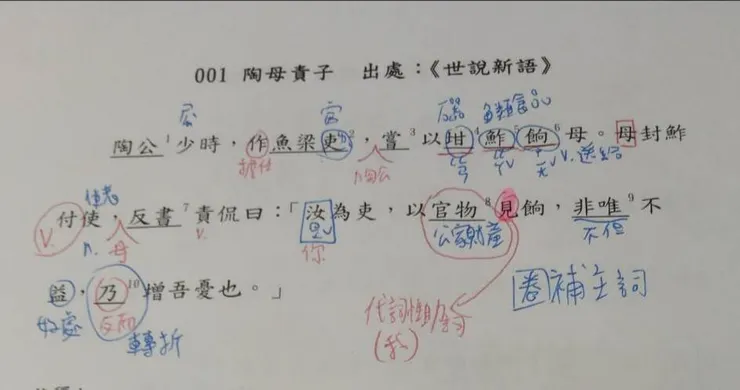 001 陶母責子 出處：《世說新語》
官 瓦器 魚類食品
陶公1少時，作魚梁吏2，嘗3以坩4鮓5餉6母。母封鮓
擔任 ㄎㄢ ㄓㄚˇ V. 送給
使者
付使，反書7責侃曰：「汝為吏，以官物8見餉，非唯9不
V. n. 母 V. ㄖㄨˇ 你 公家財產 不但
益，乃10增吾憂也。」
好處 反而 轉折
代詞性助詞
(我)
圈補主詞